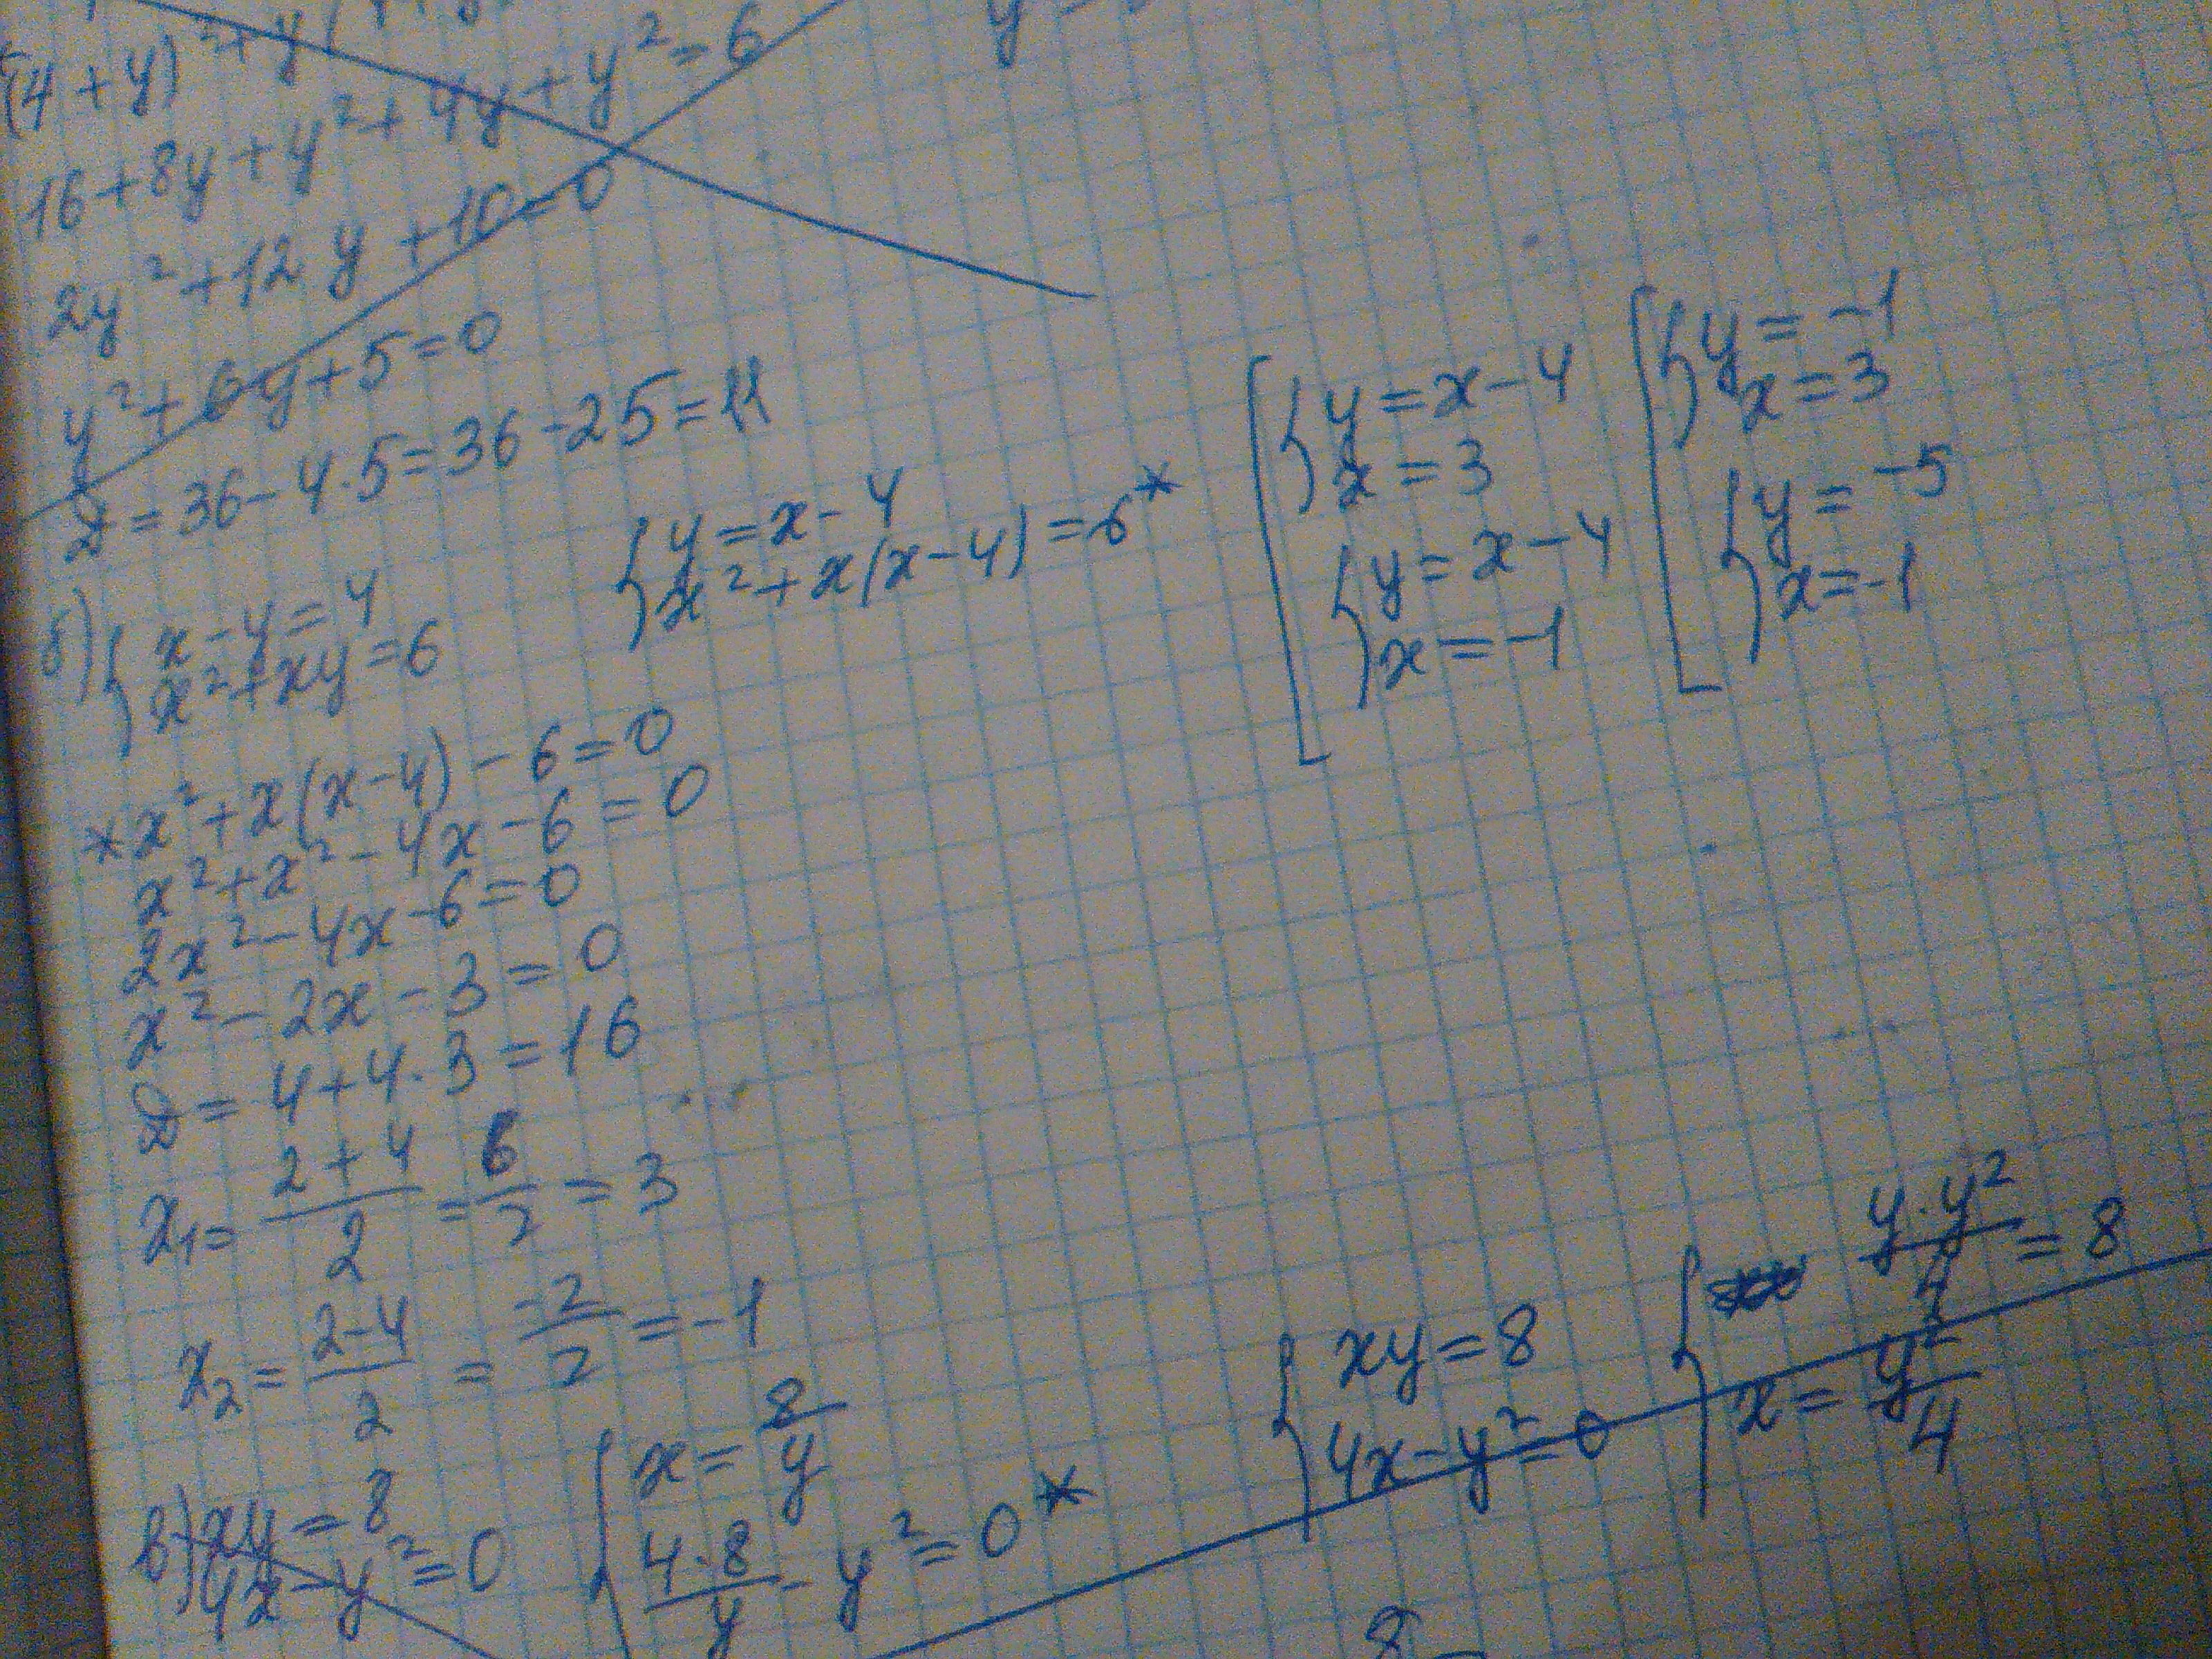 (4+y)²+y
16+8y+y²+4y+y²=6
2y²+12y+10=0
y²+6y+5=0
D=36-4·5=36-25=11
б) { x-y=4
x²+xy=6
{ y=x-4
x²+x(x-4)=6*
[ { y=x-4
x=3
{ y=x-4
x=-1
[ { y=-1
x=3
{ y=-5
x=-1
*x²+x(x-4)-6=0
x²+x²-4x-6=0
2x²-4x-6=0
x²-2x-3=0
D=4+4·3=16
x₁=(2+4)/2=6/2=3
x₂=(2-4)/2=-2/2=-1
в) { xy=8
4x-y²=0
{ x=8/y
4·8/y-y²=0*
{ xy=8
4x-y²=0
{ y·y²/4=8
x=y²/4
8